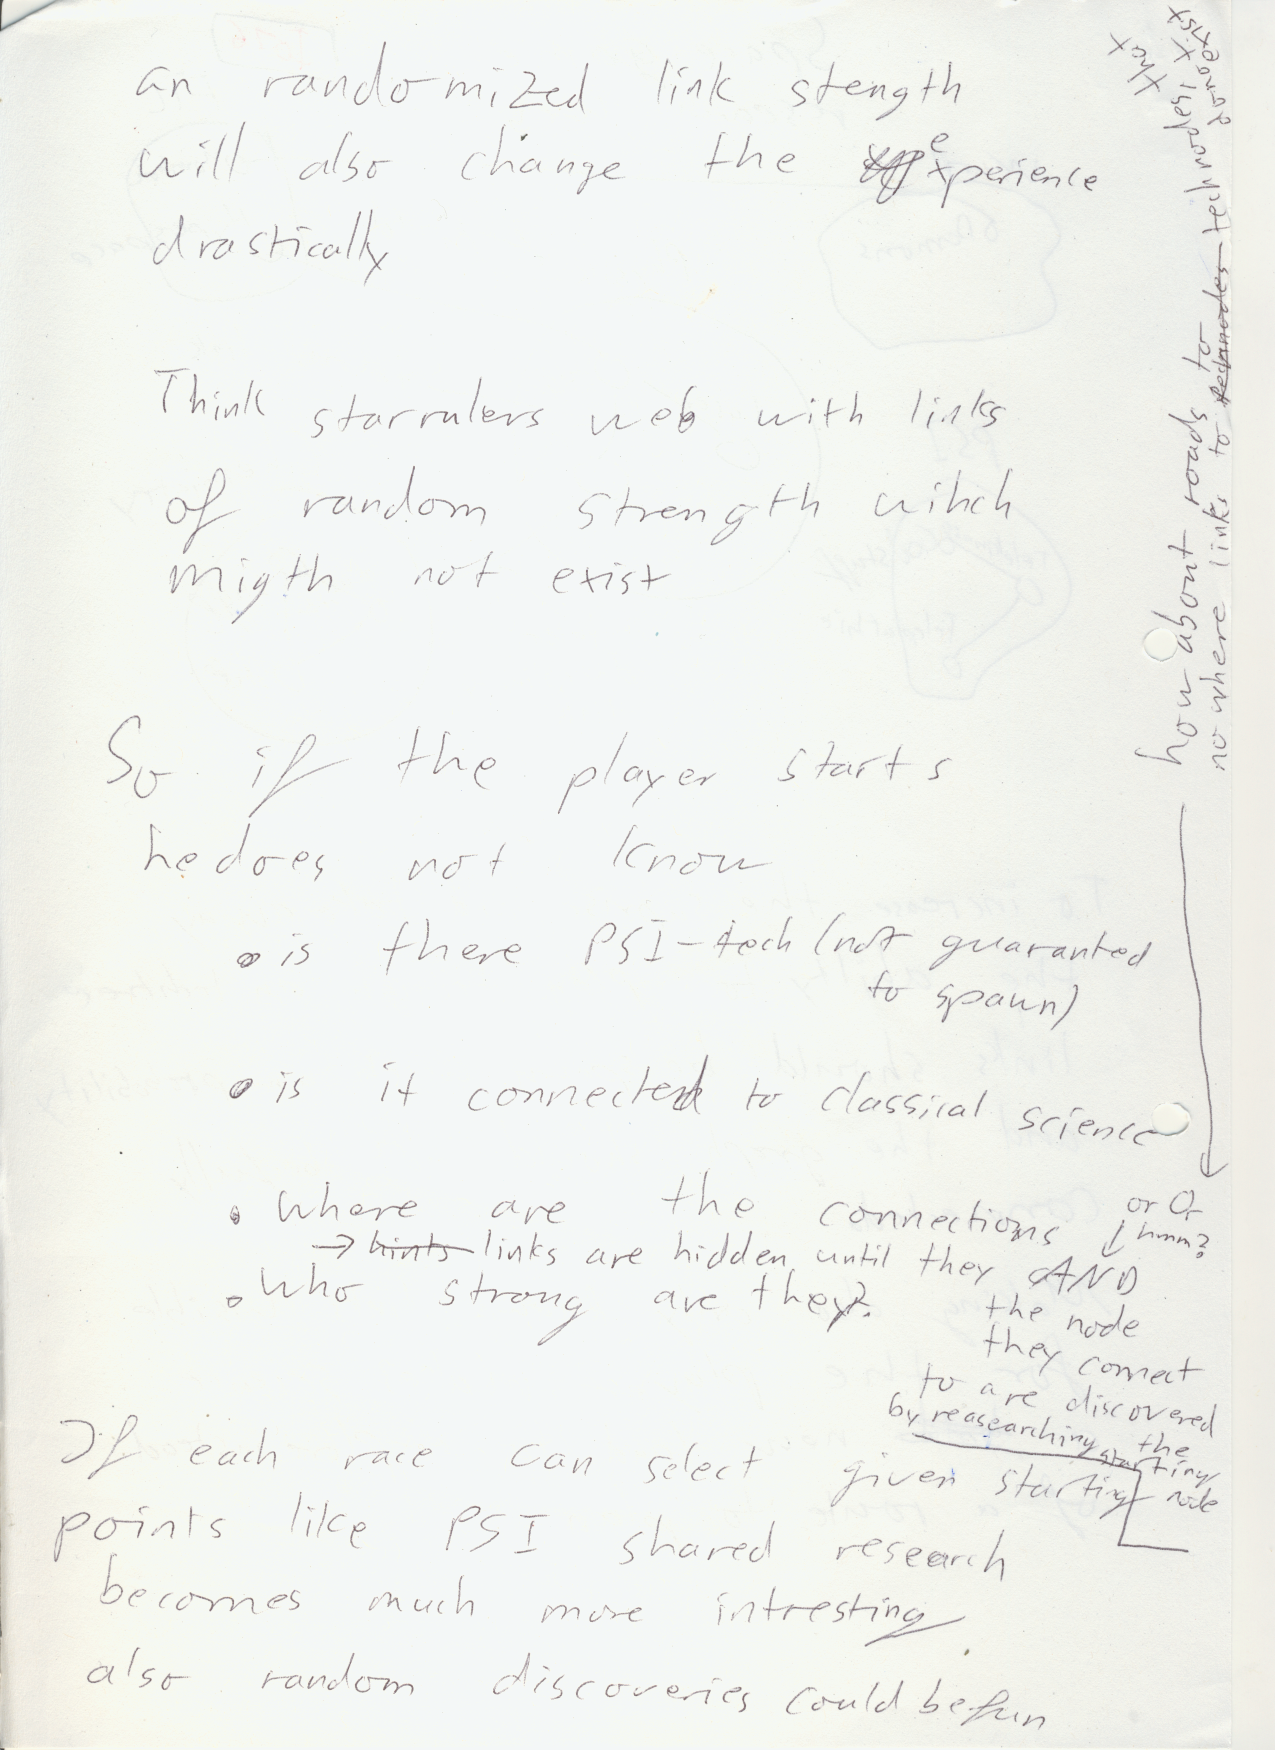 an randomized link stength
will also change the experience
drastically
Think starrulers web with links
of random strength wihch
migth not exist
So if the player starts
he does not know
• is there PSI-tech (not guaranted
to spawn)
• is it connected to classical science
• where are the connections
→ hints links are hidden until they AND
or Or
hmm?
the node
they connect
to are discovered
by reasearching the
starting
node
• who strong are they?
If each race can select given starting
points like PSI shared research
becomes much more intresting.
also random discoveries could be fun
how about roads to
no where links to technodes
that
dunt exist